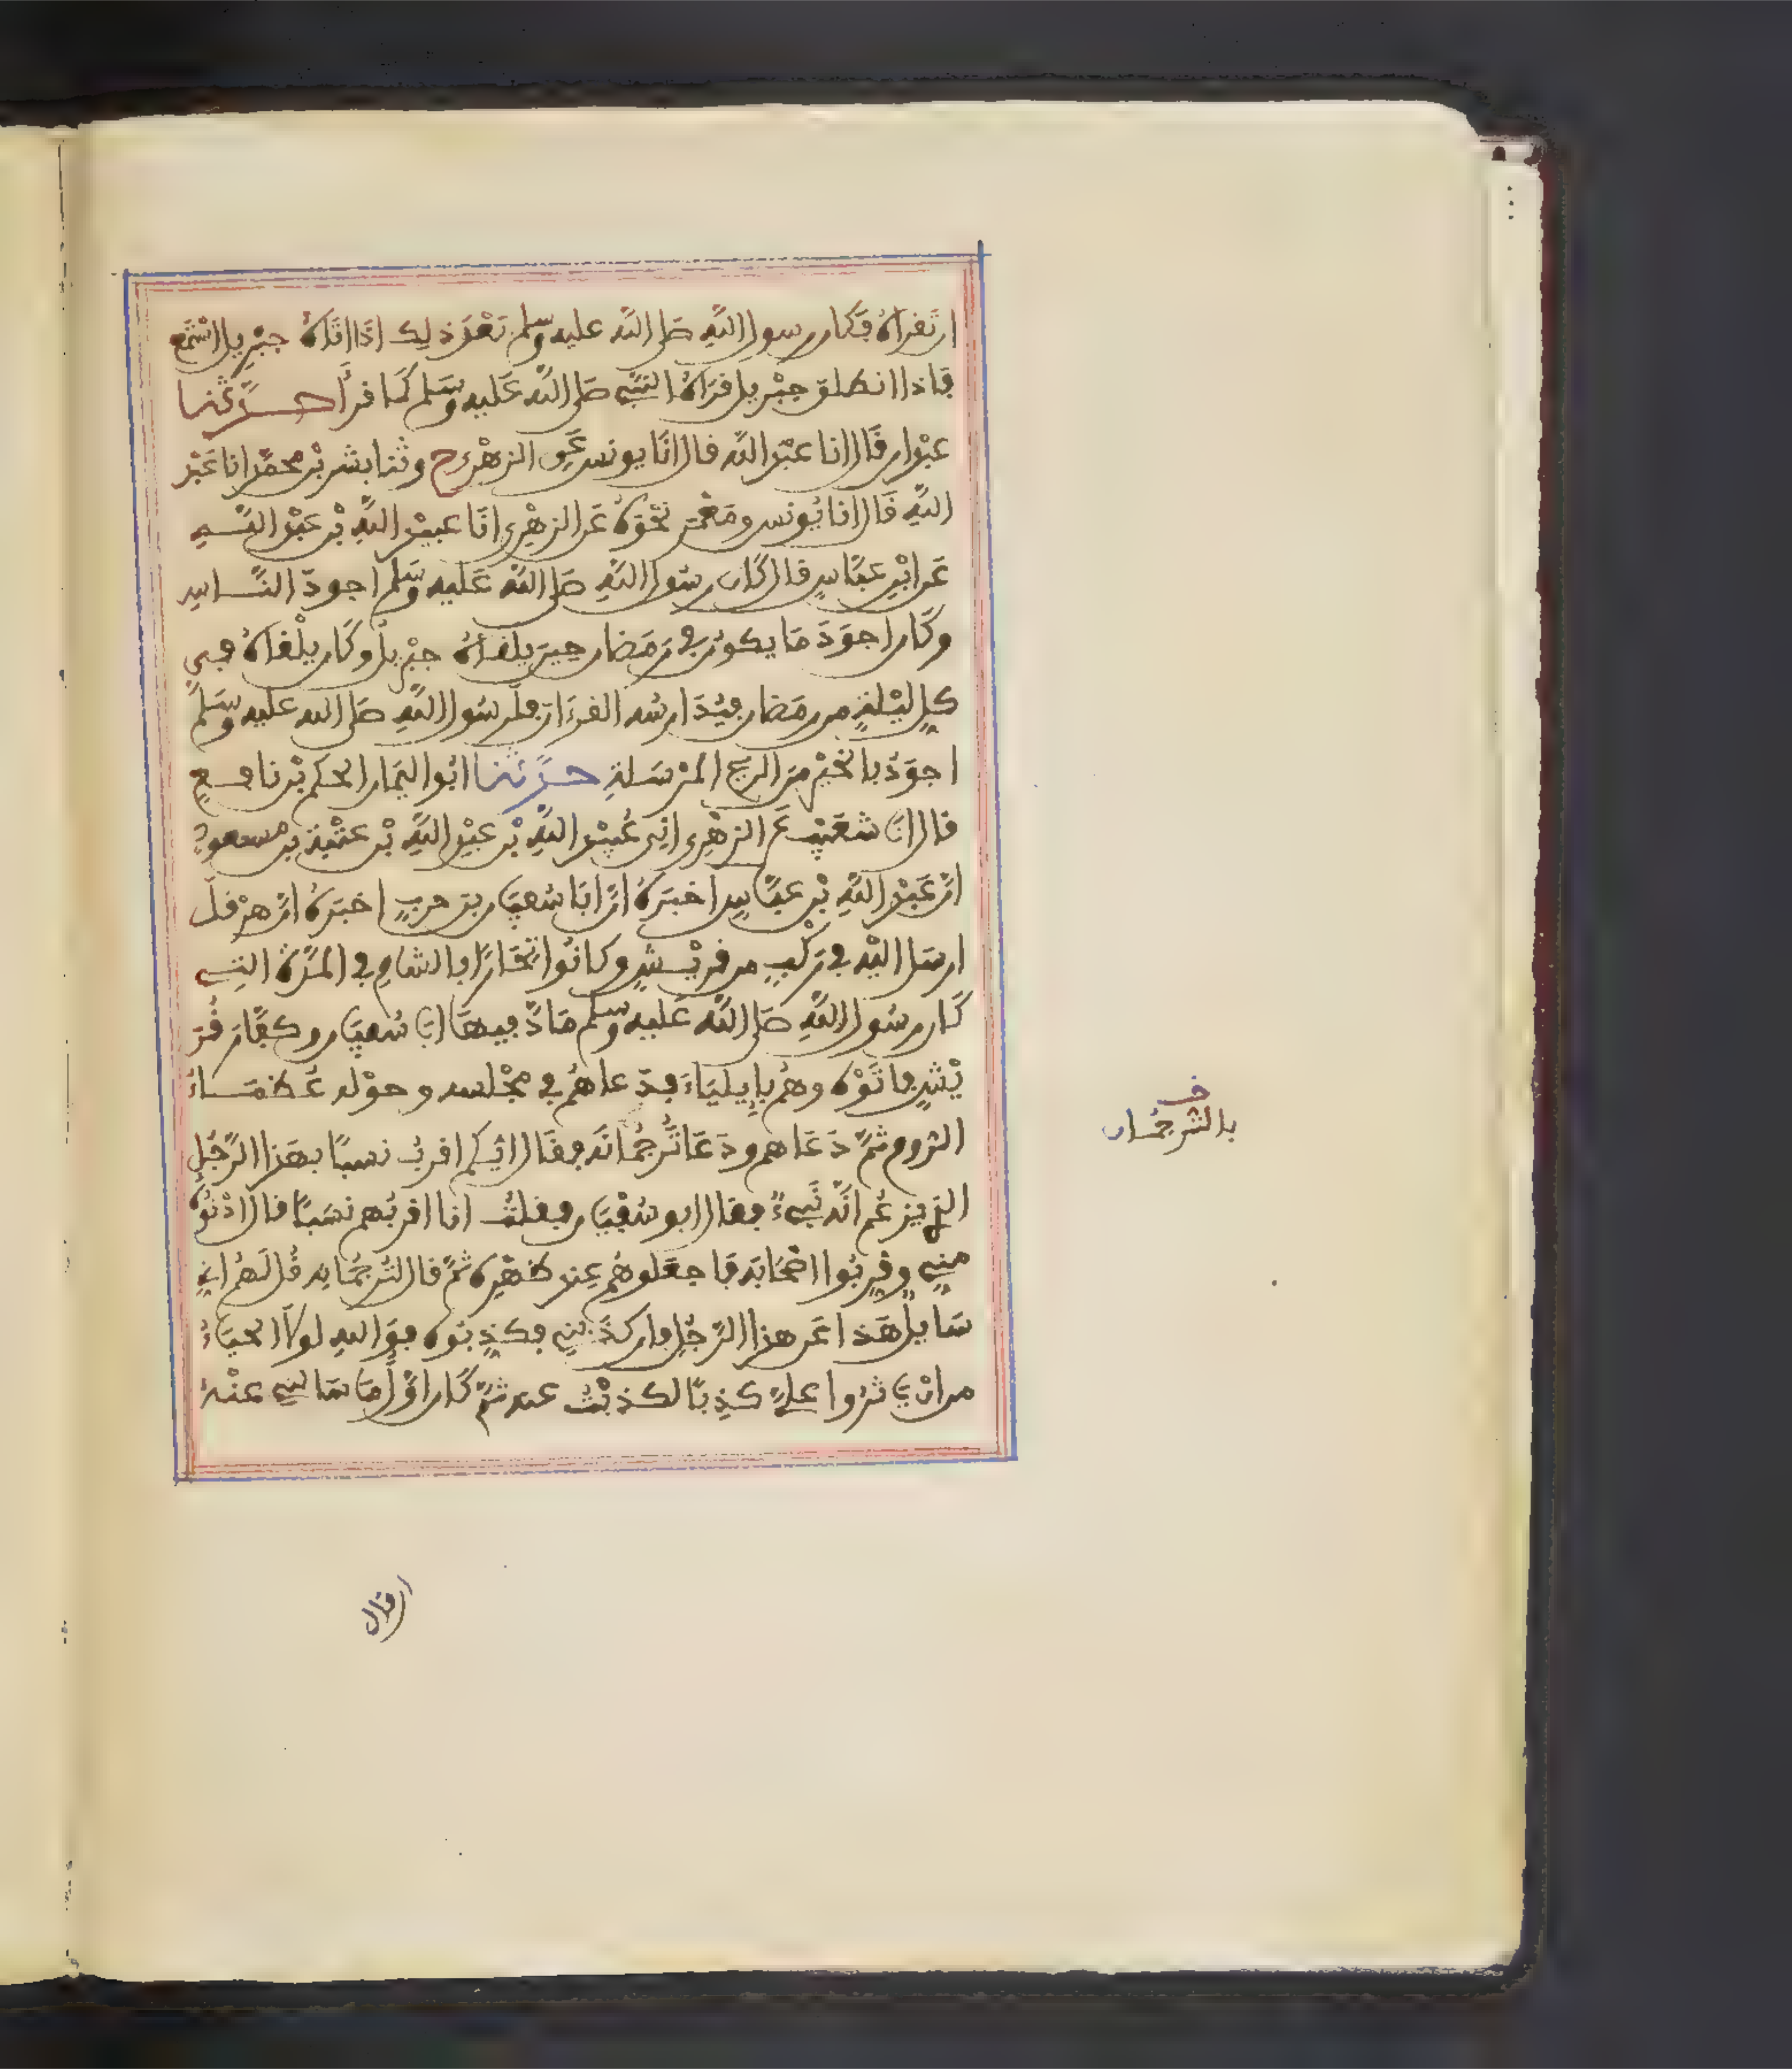 ان تقرأه فكان رسول الله صلى الله عليه وسلم بعد ذلك اذا اتاه جبريل استمع
فاذا انطلق جبريل قرأه النبي صلى الله عليه وسلم كما قرأ حدثنا
عبدان قال انا عبد الله قال انا يونس عن الزهري ح وثنا بشر بن محمد انا عبد
الله قال انا يونس ومعمر نحوه عن الزهري انا عبيد الله بن عبد الله
عن ابن عباس قال كان رسول الله صلى الله عليه وسلم اجود الناس
وكان اجود ما يكون في رمضان حين يلقاه جبريل وكان يلقاه في
كل ليلة من رمضان فيدارسه القرءان فلرسول الله صلى الله عليه وسلم
اجود بالخير من الريح المرسلة حدثنا ابو اليمان الحكم بن نافع
قال انا شعيب عن الزهري اني عبيد الله بن عبد الله بن عتبة بن مسعود
ان عبد الله بن عباس اخبره ان ابا سفيان بن حرب اخبره ان هرقل
ارسل اليه في ركب من قريش وكانوا تجارا بالشام في المدة التي
كان رسول الله صلى الله عليه وسلم ماد فيها ابا سفيان وكفار قر
يش فاتوه وهم بإيلياء فدعاهم في مجلسه وحوله عظماء
الروم ثم دعاهم ودعا ترجمانه فقال ايكم اقرب نسبا بهذا الرجل
الذي يزعم انه نبيء فقال ابو سفيان فقلت انا اقربهم نسبا قال ادنوه
مني وقربوا اصحابه فاجعلوهم عند ظهره ثم قال لترجمانه قل لهم اني
سايل هذا عن هذا الرجل فان كذبني فكذبوه فوالله لولا الحياء
من ان ياثروا علي كذبا لكذبت عنه ثم كان اول ما سالني عنه
خ
بالترجمان
ان قال